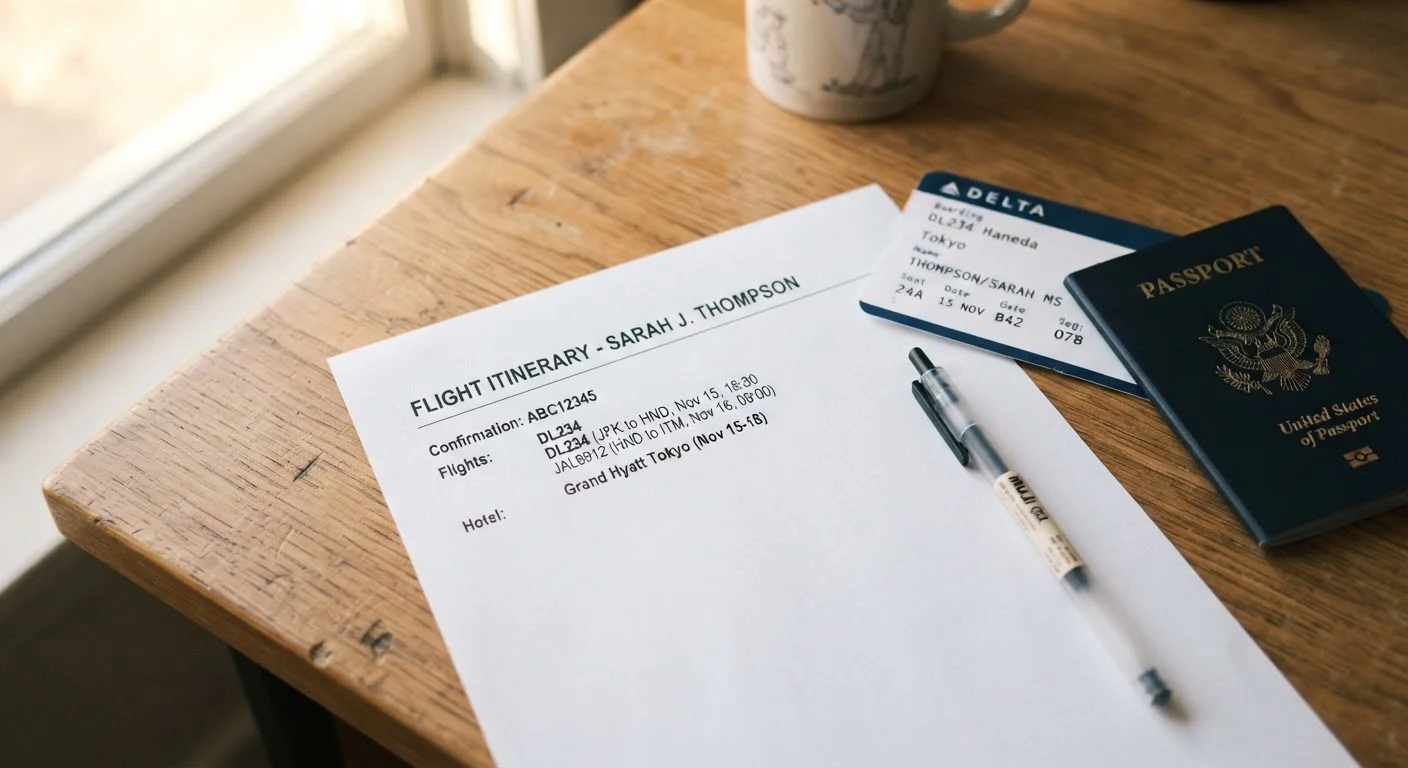 FLIGHT ITINERARY - SARAH J. THOMPSON
Confirmation: ABC12345
Flights: DL234
DL234 (JPK to HND, Nov 15, 18:30
JAL8912 (HND to ITM, Nov 16, 08:00)
Hotel: Grand Hyatt Tokyo (Nov 15-18)
DELTA
Boarding
DL234 Haneda
Tokyo
Name
THOMPSON/SARAH MS
Seat Date Gate
24A 15 NOV B42 078
PASSPORT
United States
of Passport
MUJI